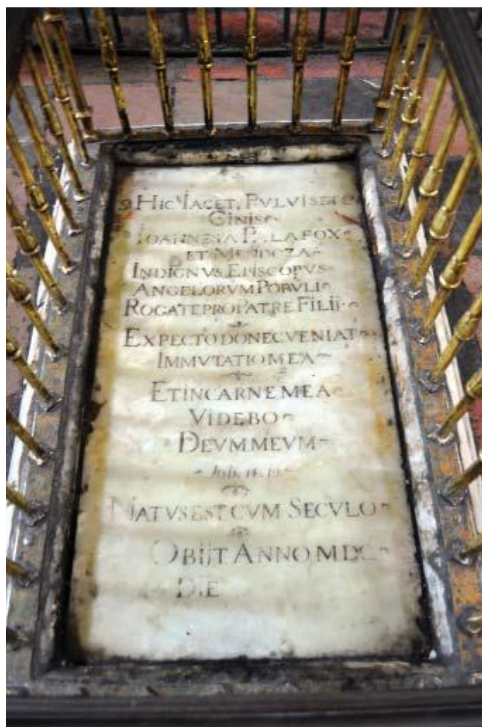 HIC IACET, PVLVIS ET
CINIS
IOANNES A PALAFOX
ET MENDOZA
INDIGNVS EPISCOPVS
ANGELORVM POPVLI
ROGATE PRO PATRE FILII
EXPECTO DONEC VENIAT
IMMVTATIO MEA
ET IN CARNE MEA
VIDEBO
DEVM MEVM
Job.
NATVS EST CVM SECVLO
OBIIT ANNO MDC
DIE